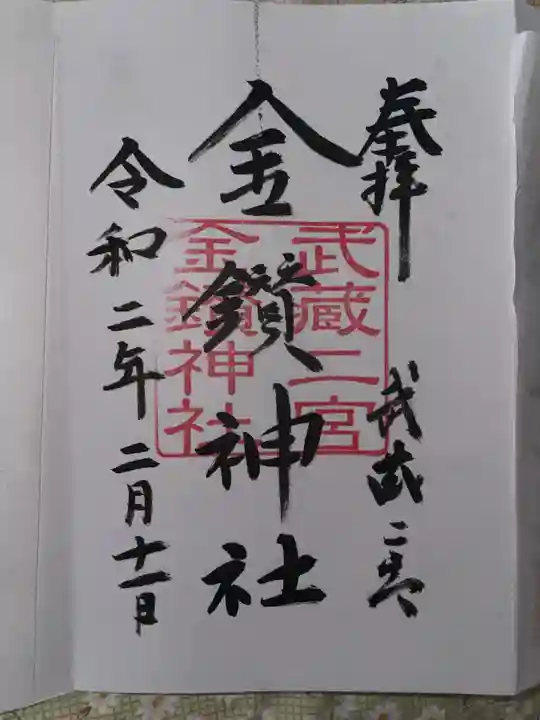 奉拝
武蔵二宮
金鑚神社
武蔵二宮
金鑚神社
令和二年二月十一日